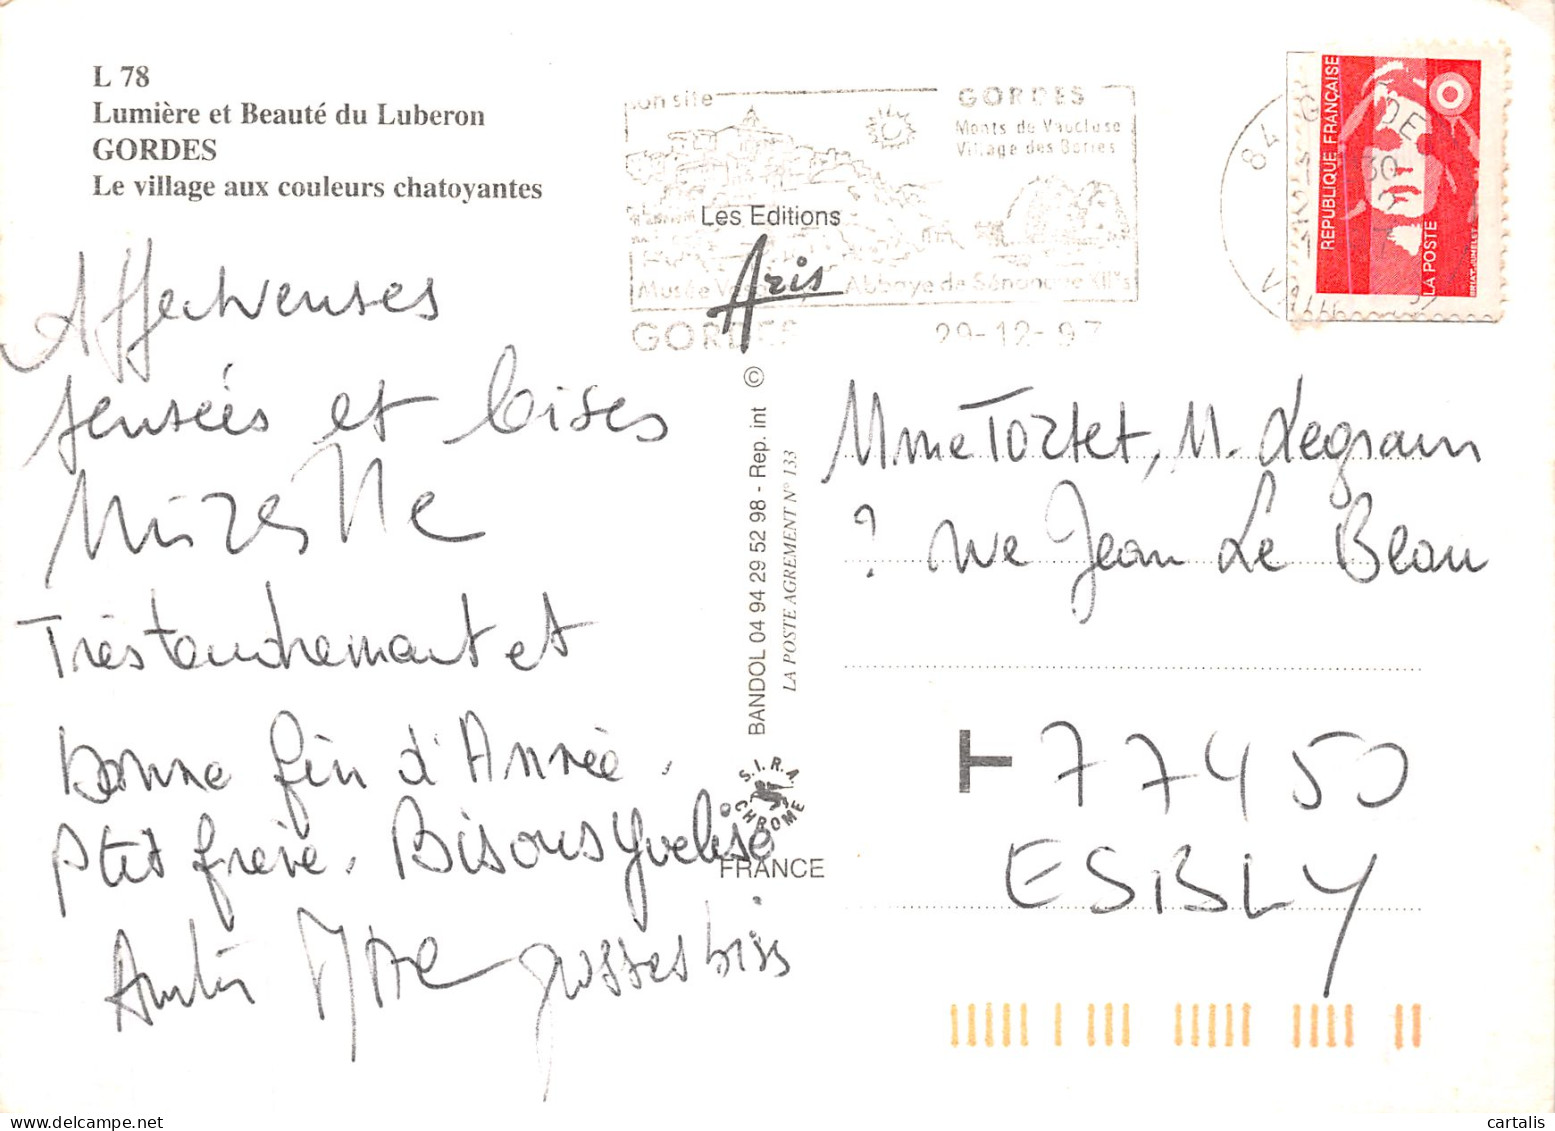 L 78
Lumière et Beauté du Luberon
GORDES
Le village aux couleurs chatoyantes
Affectueuses
pensées et bises
Mireille
Très tendrement et
bonne fin d'Année,
p'tit frère. Bisous Yvelise
grosses bises
son site
GORDES
Monts de Vaucluse
Village des Bories
Musée Vasarely Abbaye de Sénanque XII°s
GORDES 29-12-97
Les Editions
Aris
©
BANDOL 04 94 29 52 98 - Rep. int
LA POSTE AGREMENT N° 133
S.I.R.A.
CHROME
FRANCE
84 GORDES
VAUCLUSE
REPUBLIQUE FRANÇAISE
LA POSTE
BRIAT-JUMELET
Mme Tortet, M. Legrain
? rue Jean Le Beau
T 77450
ESBLY
cartalis